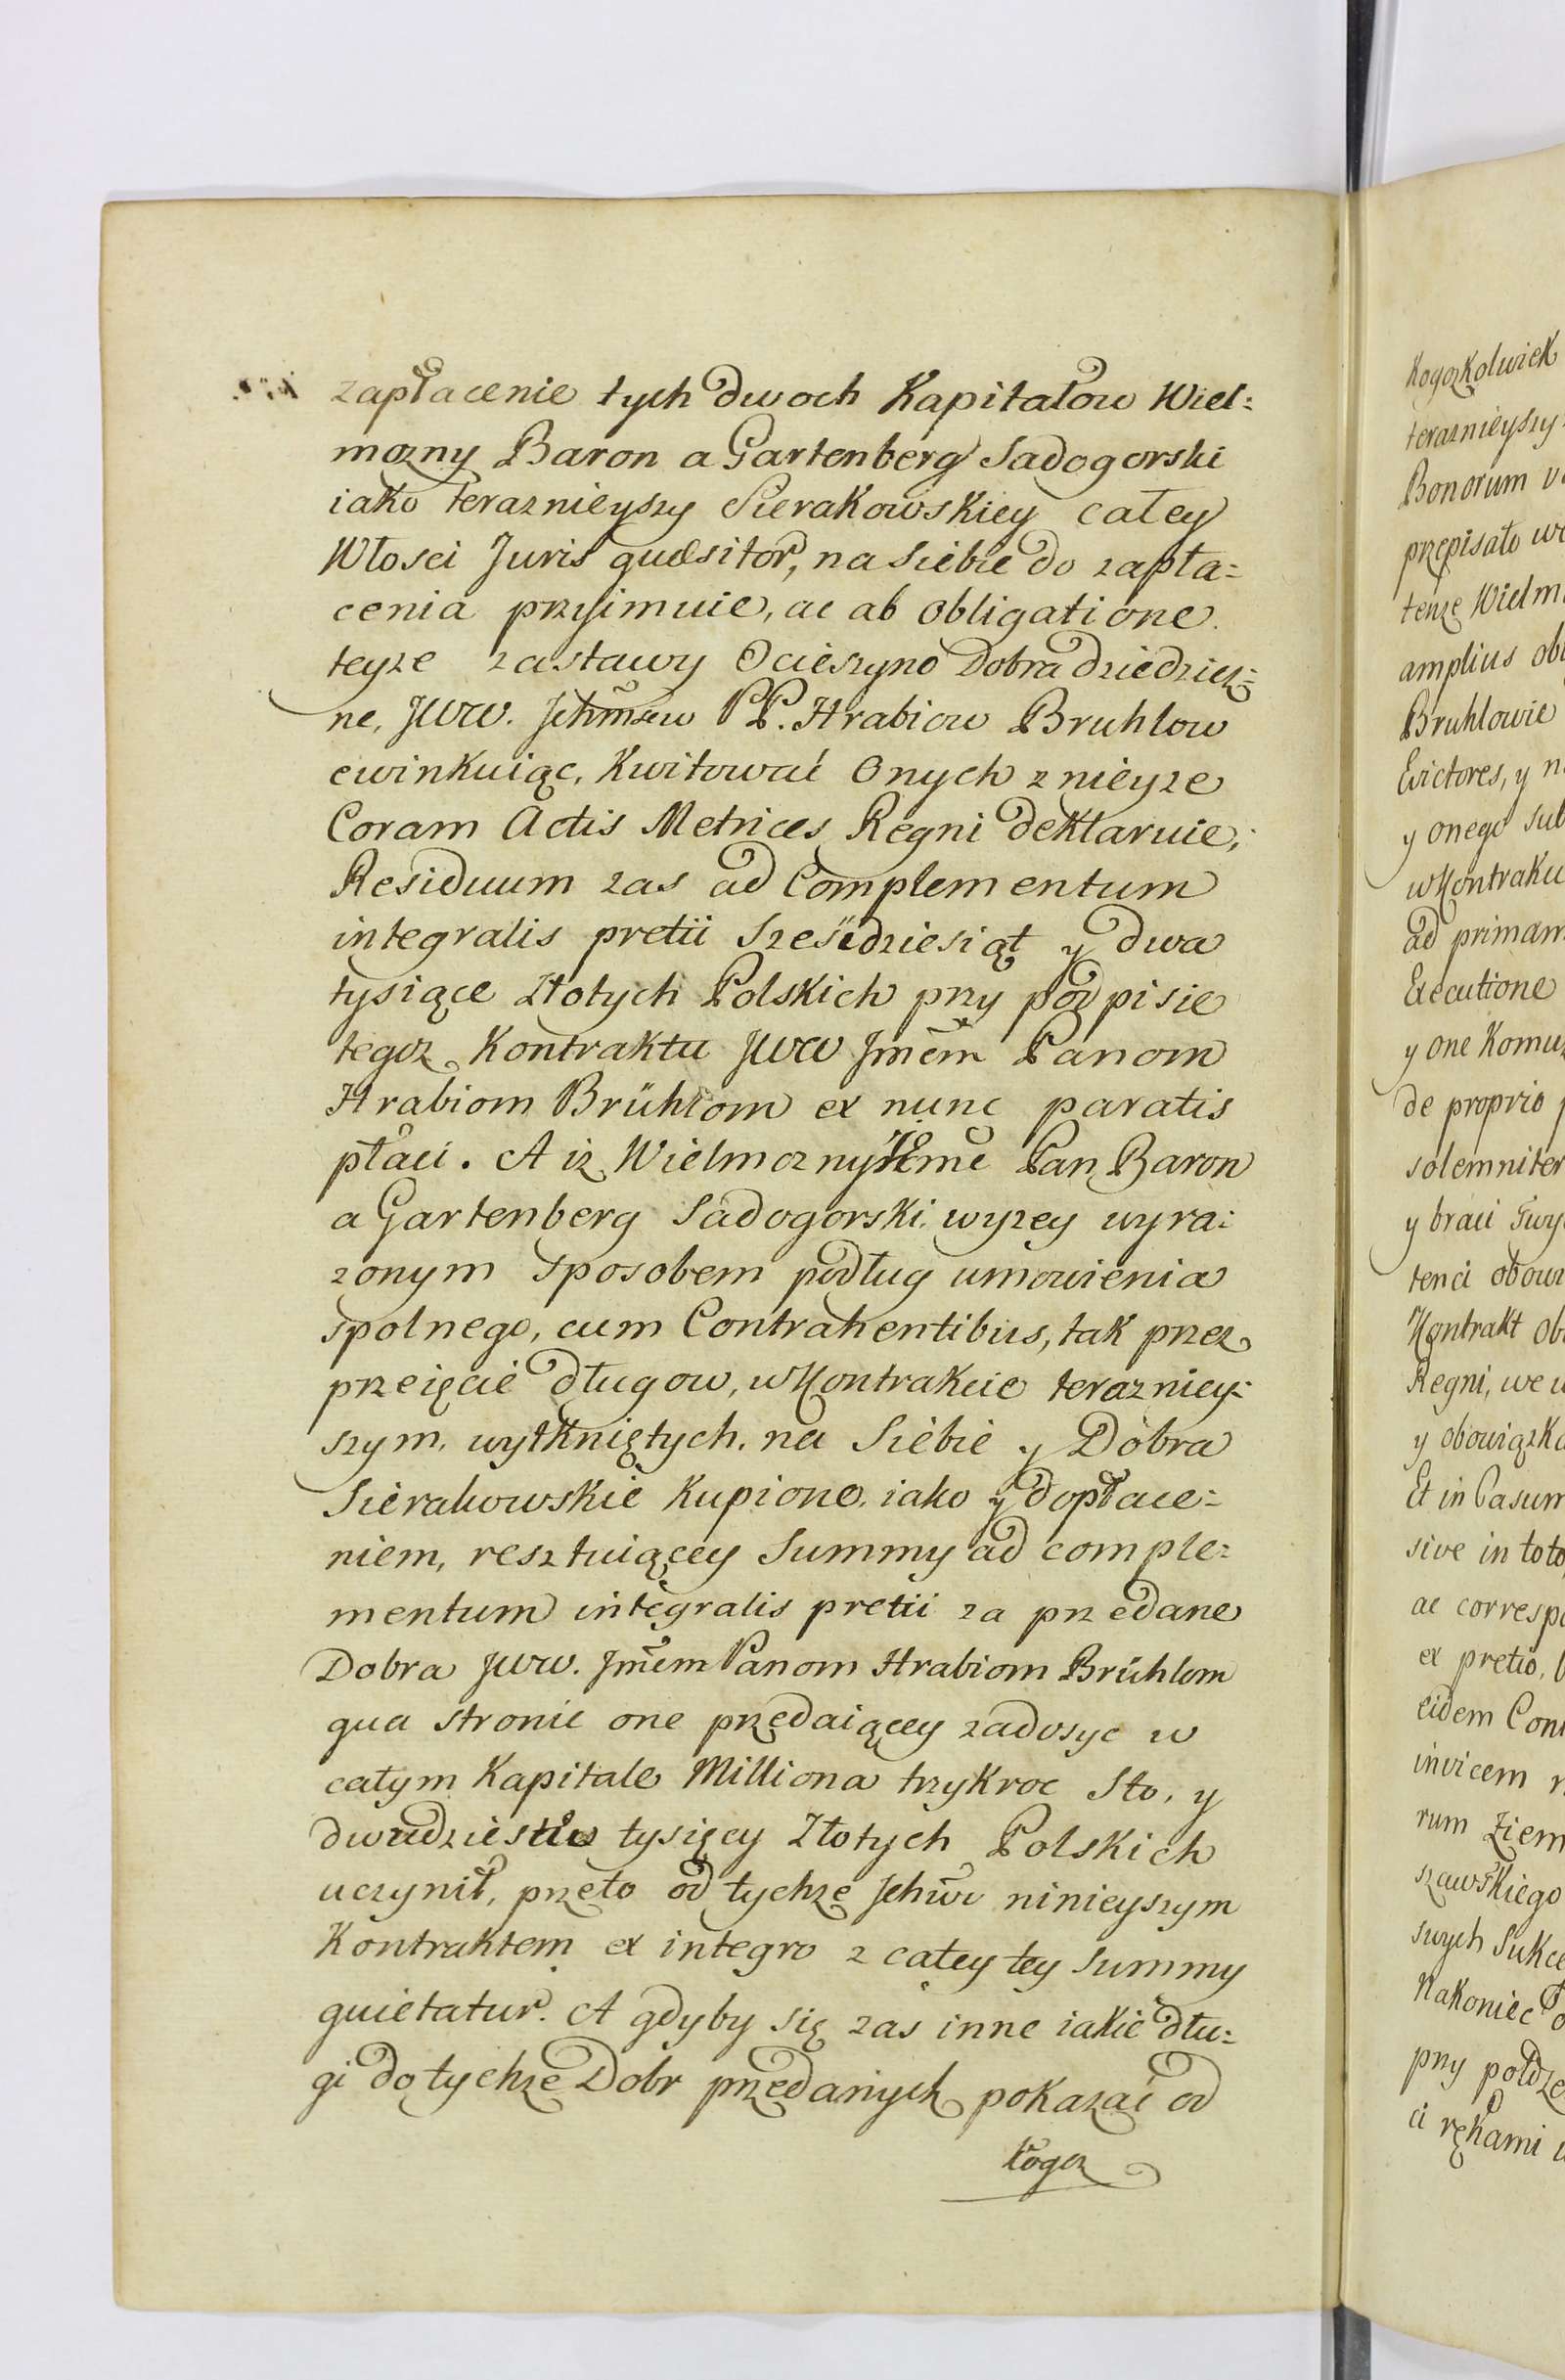 zapłacenie tych dwoch Kapitałow Wiel:
mozny Baron a Gartenberg Sadogorski
iako teraznieyszy Sierakowskiey całey
Włosci Juris quæsitor, na siebie do zapła:
cenia przyimuie, ac ab obligatione
teyze zastawy Ocieszyno Dobra dziedzicz:
ne, JWW. PP. Hrabiow Bruhlow
ewinkuiąc, Kwitować Onych z nieyze
Coram Actis Metrices Regni deklaruie,
Residuum zas ad Complementum
integralis pretii Sześćdziesiąt y dwa
tysiące Złotych Polskich przy podpisie
tegoz Kontraktu JWW Jmem Panom
Hrabiom Brühlom ex nunc paratis
płaci. A iz Wielmozny Pan Baron
a Gartenberg Sadogorski wyzey wyra:
zonym sposobem podług umowienia
spolnego, cum Contrahentibus, tak przez
przeięcie długow, w Kontrakcie terazniey:
szym, wytkniętych, na Siebie y Dobra
Sierakowskie Kupione, iako y dopłace:
niem, resztuiącey Summy ad comple:
mentum integralis pretii za przedane
Dobra JWW. Jmem Panom Hrabiom Brühlom
qua stronie one przedaiącey zadosyc w
całym Kapitale Milliona trzykroc Sto, y
dwudziestu tysięcy Złotych Polskich
uczynił, przeto od tychze ninieyszym
Kontraktem ex integro z całey tey Summy
quietatur. A gdyby się zas inne iakie dłu:
gi do tychze Dobr przedanych pokazać od
kogoz
Kogozkolwiek
teraznieyszy
Bonorum
przepisało
tenze Wielm
amplius
Bruhlowie
Evictores, y
y onego
w Kontrakci
ad primam
Executione
y one Komu
de proprio
solemniter
y braci
tenci
Kontrakt
Regni, we
y obowiązk
Et in Casum
sive in toto
ac corresp
ex pretio,
eidem Con
invicem
rum Ziem
szawskiego
swych Sukce
Nakoniec
przy
ci rękami